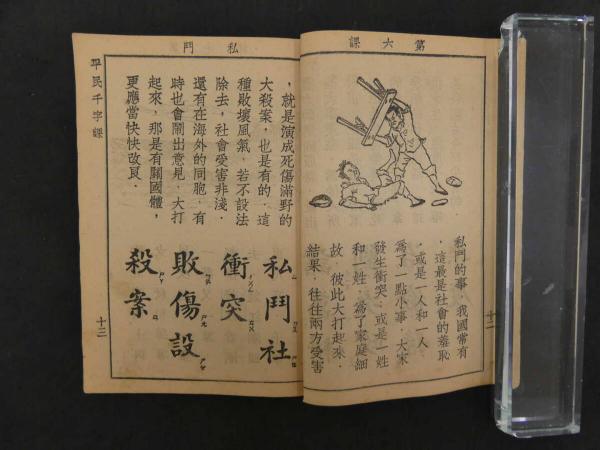 第六課
私鬥的事．我國常有
．這最是社會的羞恥
．或是一人和一人．
爲了一點小事．大家
發生衝突．或是一姓
和一姓．爲了家庭細
故．彼此大打起來．
結果．往往兩方受害
十二
私鬥
．就是演成死傷滿野的
大殺案．也是有的．這
種敗壞風氣．若不設法
除去．社會受害非淺．
還有在海外的同胞．有
時也會鬧出意見．大打
起來．那是有關國體．
更應當快快改良．
私鬥社
衝突
敗傷設
殺案
平民千字課
十三